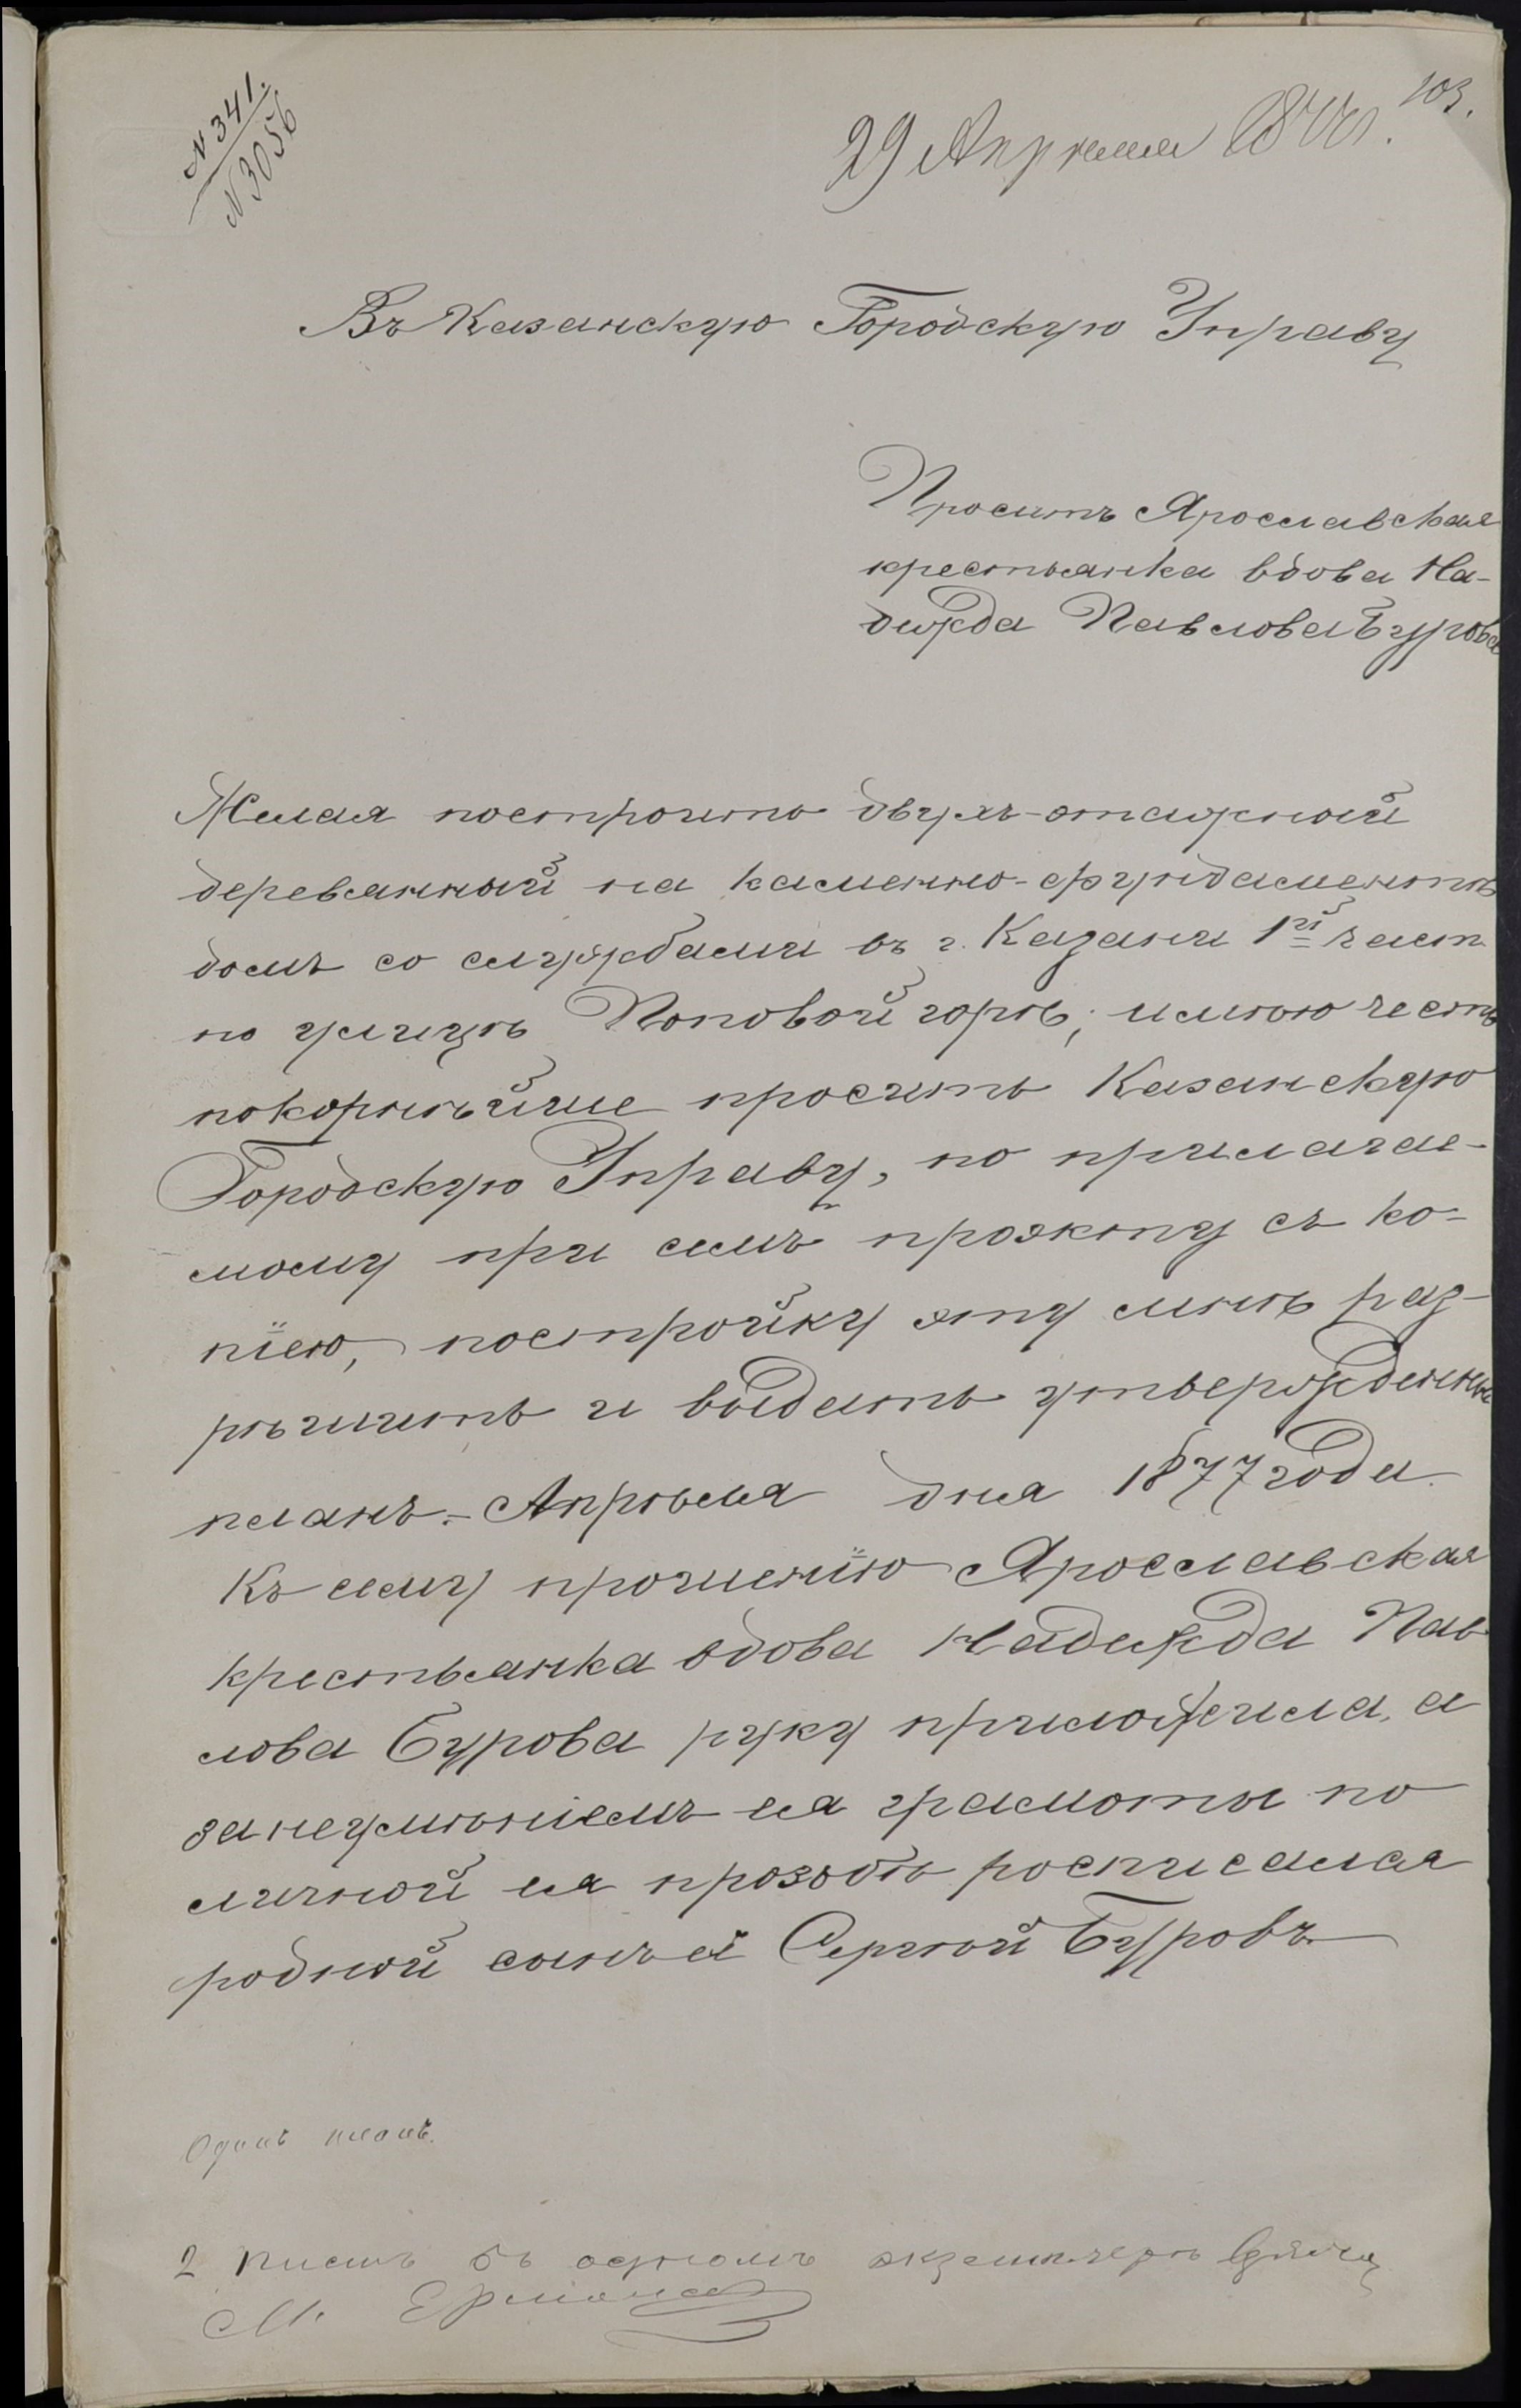 N 341.
N 3056
103.
29 Апрѣля 1877 г.
Въ Казанскую Городскую Управу
Проситъ Ярославская
крестьянка вдова На-
дежда Павлова Бурова
Желая построить двухъ-этажный
деревянный на каменно-фундаментѣ
домъ со службами въ г. Казани 1й част
по улицѣ Поповой горѣ; имѣю честь
покорнѣйше просить Казанскую
Городскую Управу, по прилагае-
мому при семъ проэкту съ ко-
піею, постройку эту мнѣ раз-
рѣшить и выдать утвержденный
планъ. Апрѣля дня 1877 года.
Къ сему прошенію Ярославская
крестьянка вдова Надежда Пав
лова Бурова руку приложила, а
за неумѣніемъ ея грамоты по
личной ея прозьбѣ росписался
родной сынъ ея Сергѣй Буровъ
Одинъ планъ.
2 плана въ одномъ экземплярѣ
М.